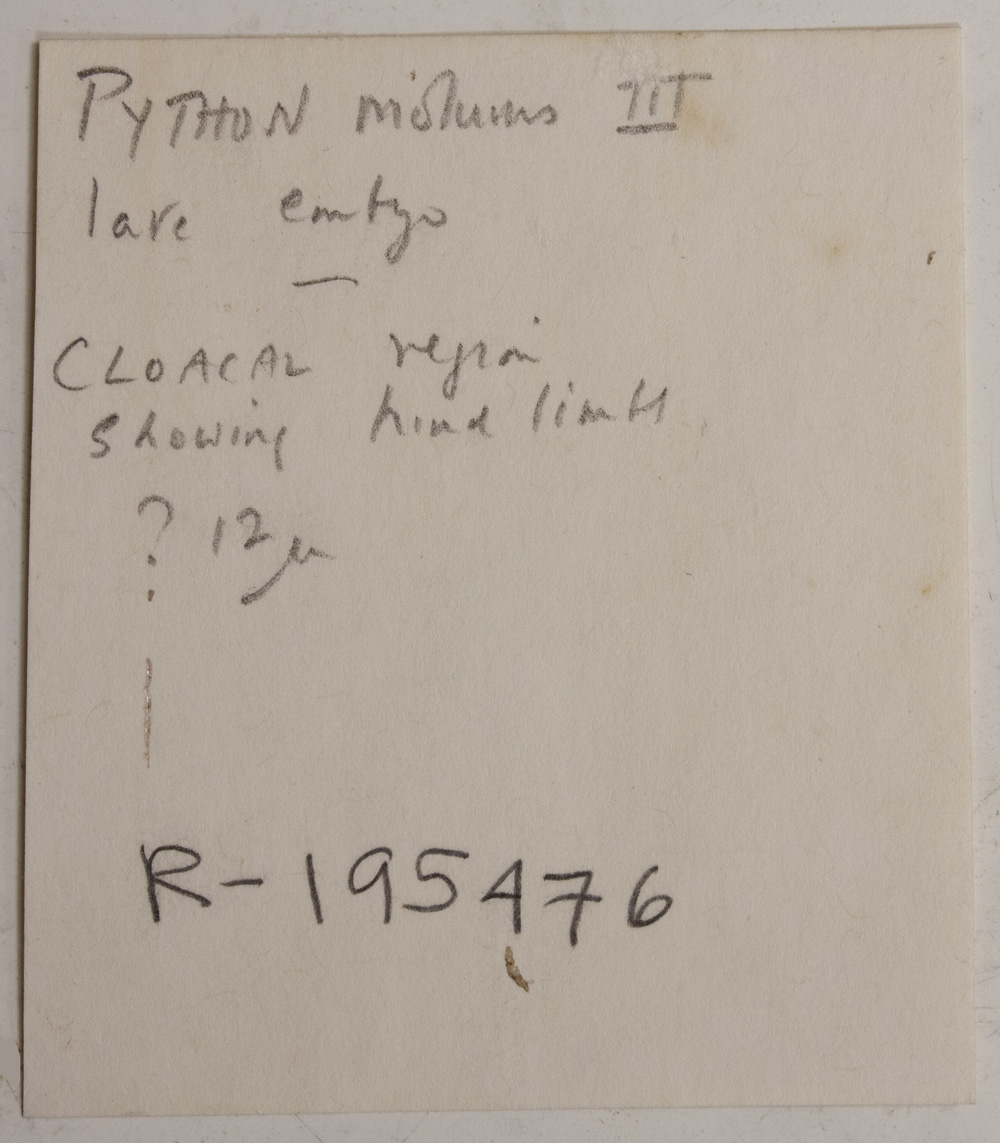 PYTHON molurus III
late embryo
—
CLOACAL region
showing hind limbs
? 12 µ
R-195476